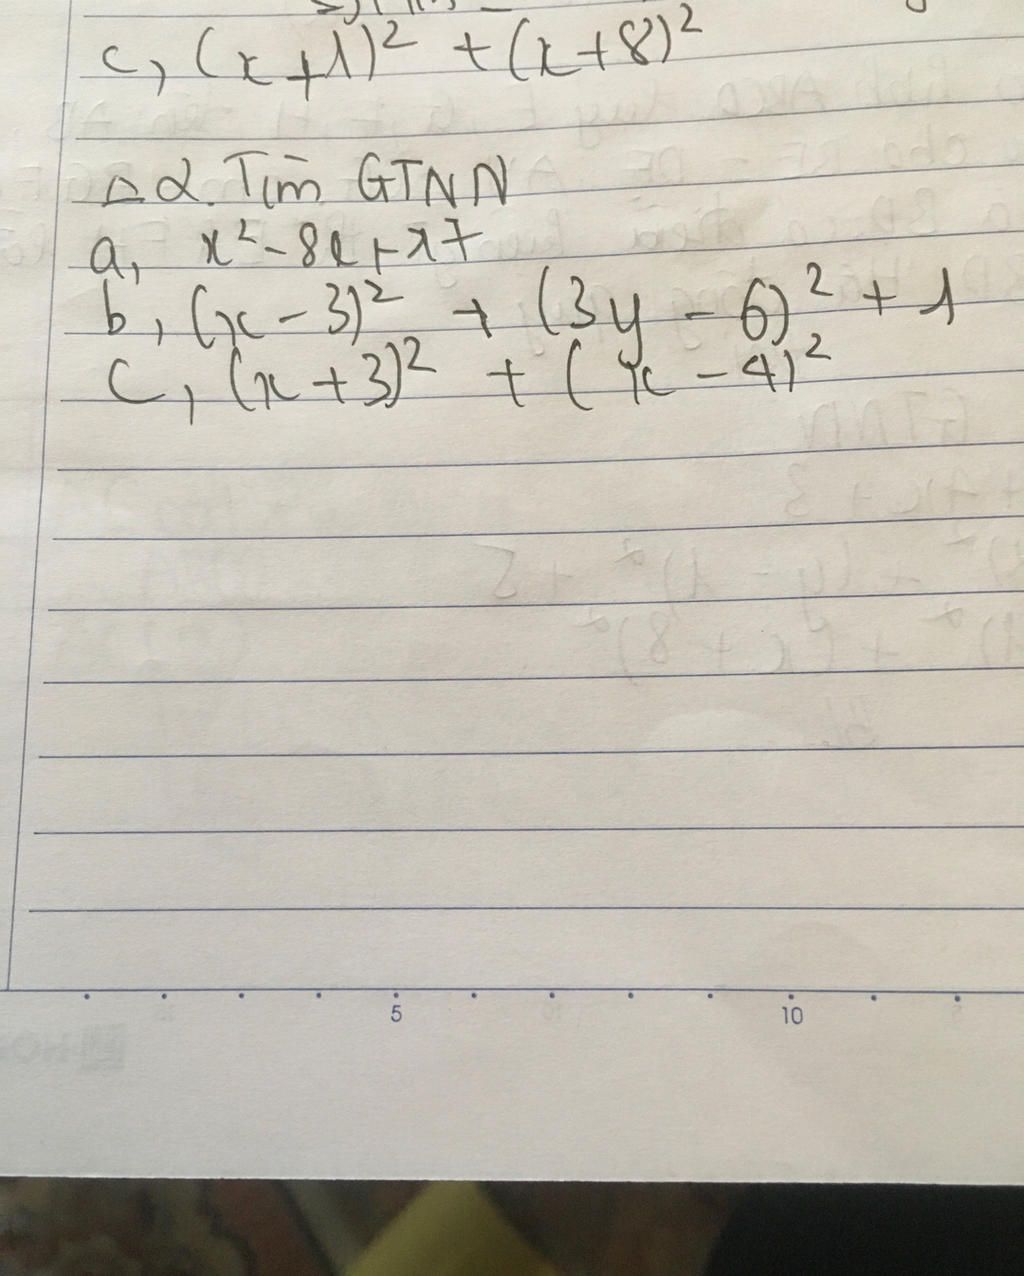 c, (x+1)² + (x+8)²
2. Tìm GTNN
a, x² - 8x + 17
b, (x - 3)² + (3y - 6)² + 1
c, (x + 3)² + (x - 4)²
5 10